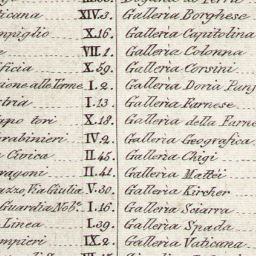 icana XIV.3. Galleria Borghese
mpiglio X.16. Galleria Capitolina
e VII.1. Galleria Colonna
ificia X.59. Galleria Corsini
zione alle Terme I.2. Galleria Doria Panf
stria I.13. Galleria Farnese
apo tori X.18. Galleria della Farne
arabinieri IV.2. Galleria Geografica
a Civica II.45. Galleria Chigi
aragoni II.41. Galleria Mattei
azzo, Via Giulia V.30. Galleria Kircher
Guardia Nob.e I.16. Galleria Sciarra
Linea I.39. Galleria Spada
mpieri IX.2. Galleria Vaticana